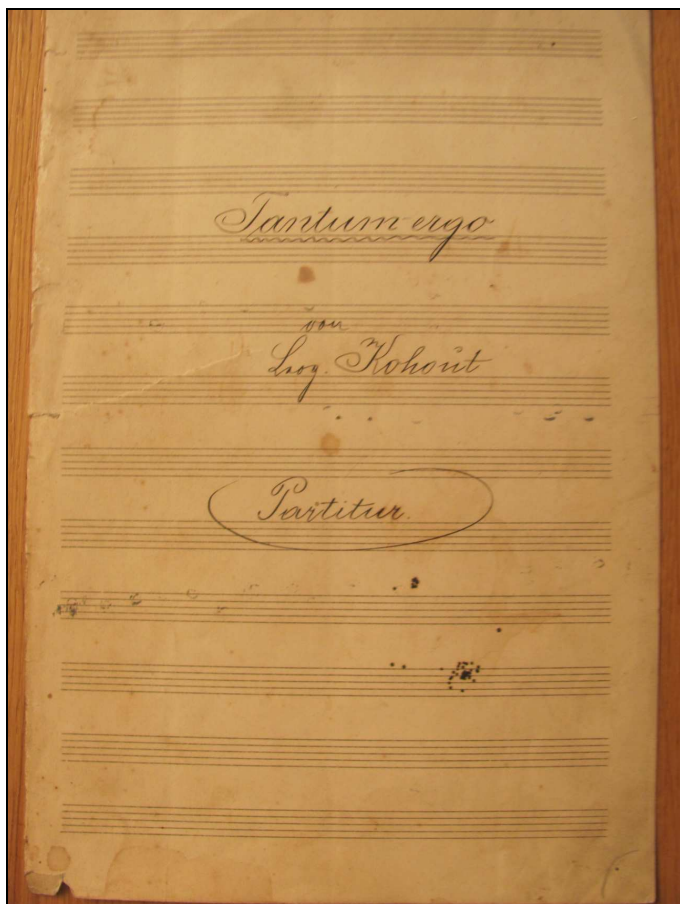 Tantum ergo
von
Kohout
Partitur.